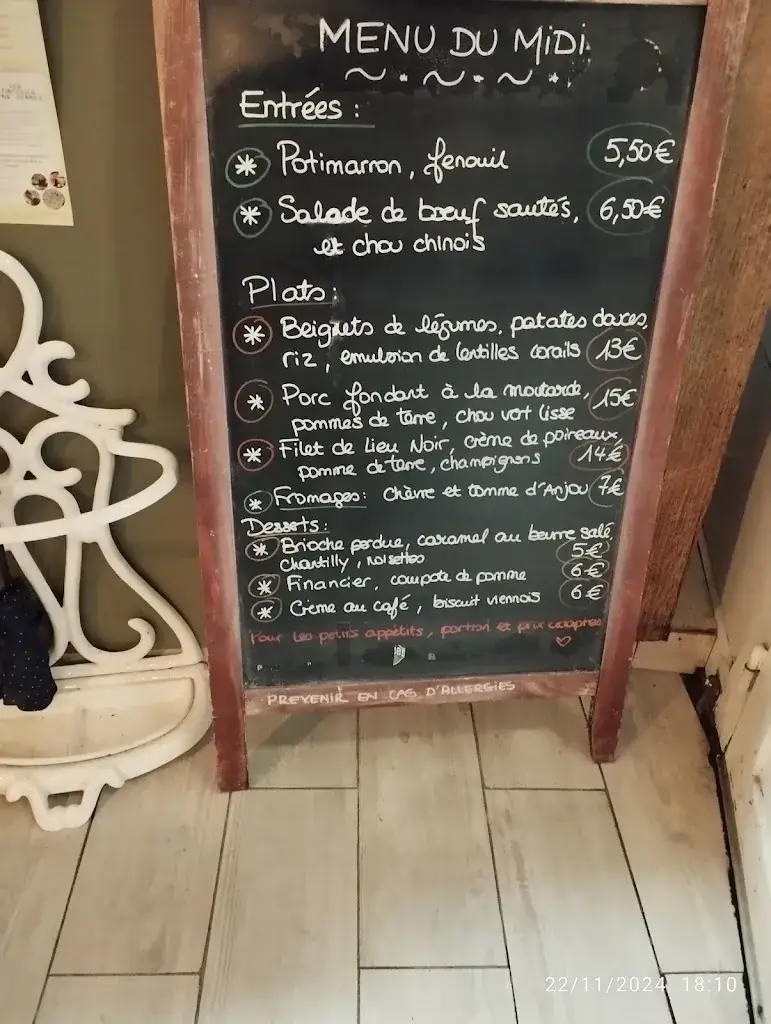 MENU DU MiDi
Entrées :
Potimarron, fenouil 5,50€
Salade de bœuf sautés, 6,50€
et chou chinois
Plats :
Beignets de légumes, patates douces,
riz, emulsion de lentilles corails 13€
Porc fondant à la moutarde, 15€
pommes de terre, chou vert lisse
Filet de Lieu Noir, crème de poireaux,
pomme de terre, champignons 14€
Fromages : Chèvre et tomme d'Anjou 7€
Desserts :
Brioche perdue, caramel au beurre salé,
chantilly, noisettes 5€
Financier, compote de pomme 6€
Crème au café, biscuit viennois 6€
Pour les petits appétits, portion et prix adaptés
PREVENIR EN CAS D'ALLERGIES
22/11/2024 18:10